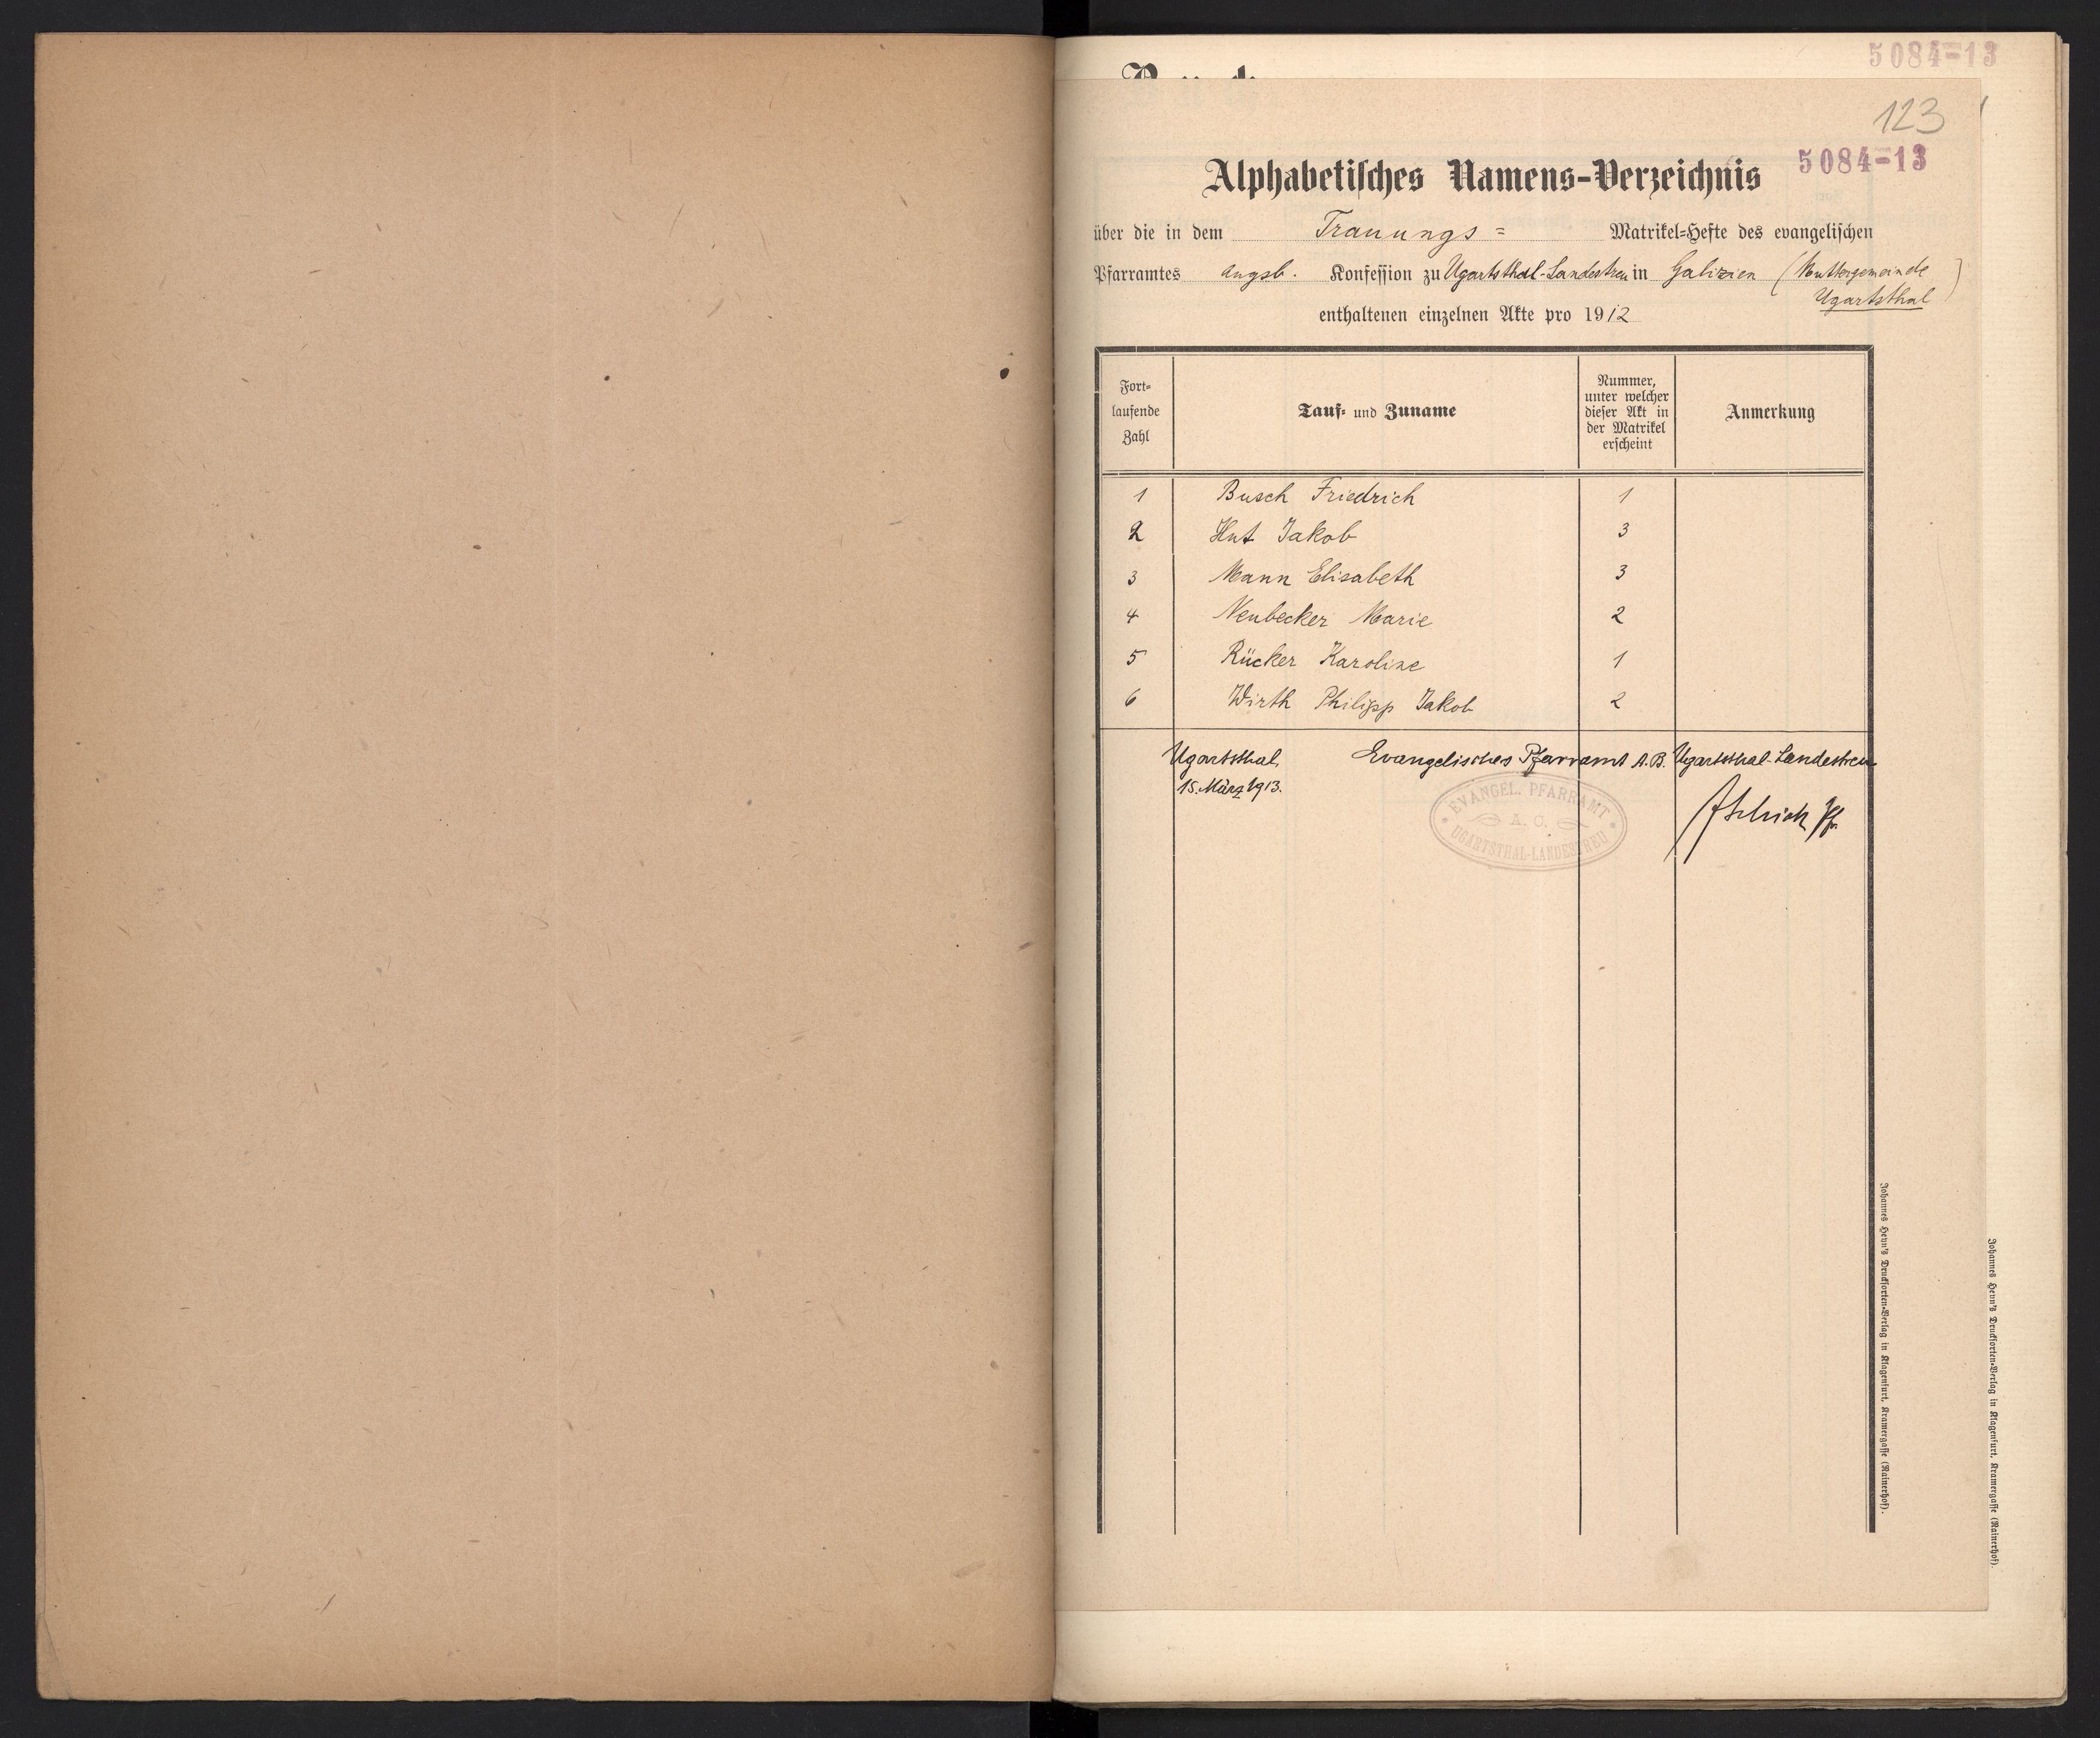 5084-13
123
5084-13
Alphabetisches Namens-Verzeichnis
über die in dem Trauungs= Matrikel-Hefte des evangelischen
Pfarramtes augsb. Konfession zu Ugartsthal-Landestreu in Galizien (Muttergemeinde Ugartsthal)
enthaltenen einzelnen Akte pro 1912
Fort-
laufende
Zahl
Tauf- und Zuname
Nummer,
unter welcher
dieser Akt in
der Matrikel
erscheint
Anmerkung
1 Busch Friedrich 1
2 Hut Jakob 3
3 Mann Elisabeth 3
4 Neubecker Marie 2
5 Rücker Karoline 1
6 Wirth Philipp Jakob 2
Ugartsthal Evangelisches Pfarramt A.B. Ugartsthal-Landestreu
15. März 1913.
EVANGEL. PFARRAMT
A. C.
UGARTSTHAL-LANDESTREU
Johannes Heyn's Drucksorten-Verlag in Klagenfurt, Kramergasse (Rainerhof).
Johannes Heyn's Drucksorten-Verlag in Klagenfurt, Kramergasse (Rainerhof).